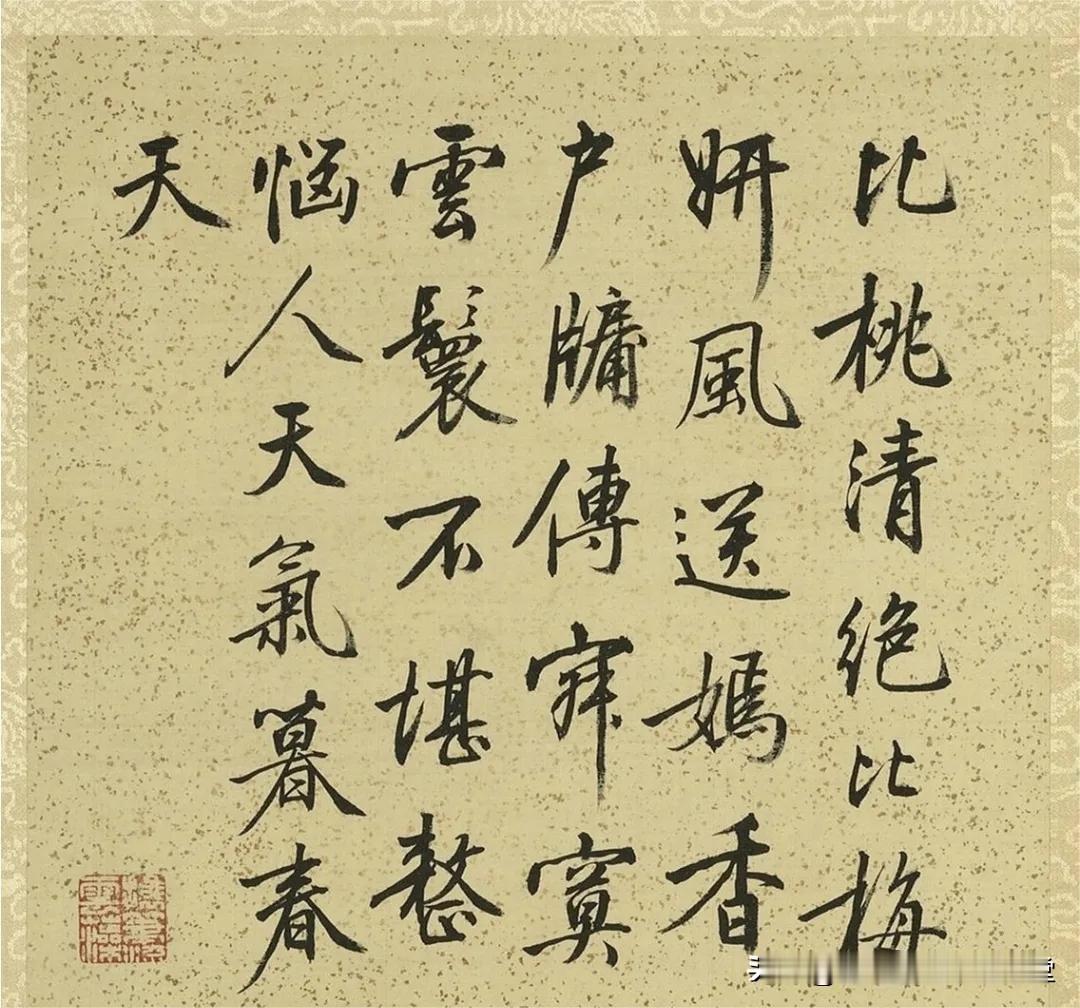 比桃清絶比梅
妍風送嫣香
户牖傳寂寞
雲鬟不堪整
惱人天氣暮春
天